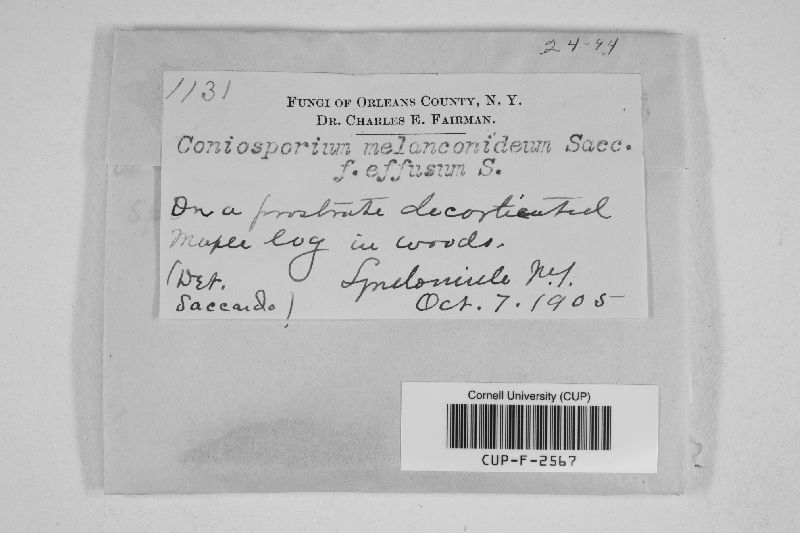 24-94
1131
FUNGI OF ORLEANS COUNTY, N. Y.
DR. CHARLES E. FAIRMAN.
Coniosporium melanconideum Sacc.
f. effusum S.
On a prostrate decorticated
maple log in woods.
(Det. Lyndonville N.Y.
Saccardo) Oct. 7. 1905
Cornell University (CUP)
CUP-F-2567